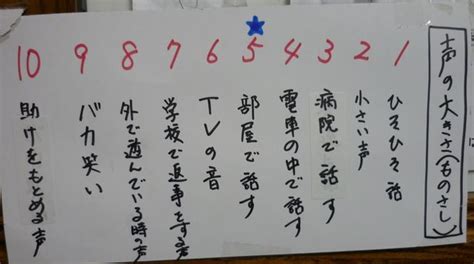 声の大きさ(ものさし)
1 ひそひそ話
2 小さい声
3 病院で話す
4 電車の中で話す
5 部屋で話す
6 TVの音
7 学校で返事をする声
8 外で遊んでいる時の声
9 バカ笑い
10 助けをもとめる声